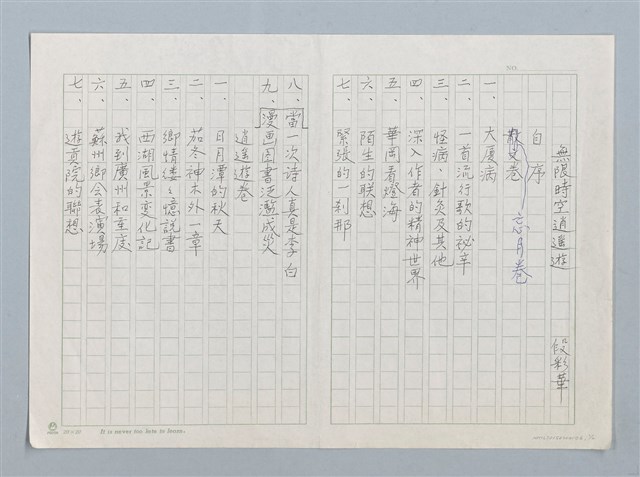 NO.
無限時空逍遙遊 段彩華
自序
散文卷 忘月卷
一、大厦病
二、一首流行歌的祕辛
三、怪病・針灸及其他
四、深入作者的精神世界
五、華岡看燈海
六、陌生的联想
七、緊張的一刹那
八、當一次诗人真是李白
九、漫画图書泛濫成災
逍遥卷
一、日月潭的秋天
二、茄冬神木外一章
三、鄉情缕々憶說書
四、西湖風景変化記
五、我到廣州和重慶
六、蘇州鄉会表演場
七、遊貢院的聯想
It is never too late to learn.